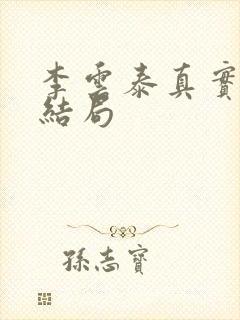 李雲泰真實
結局
孫志寶